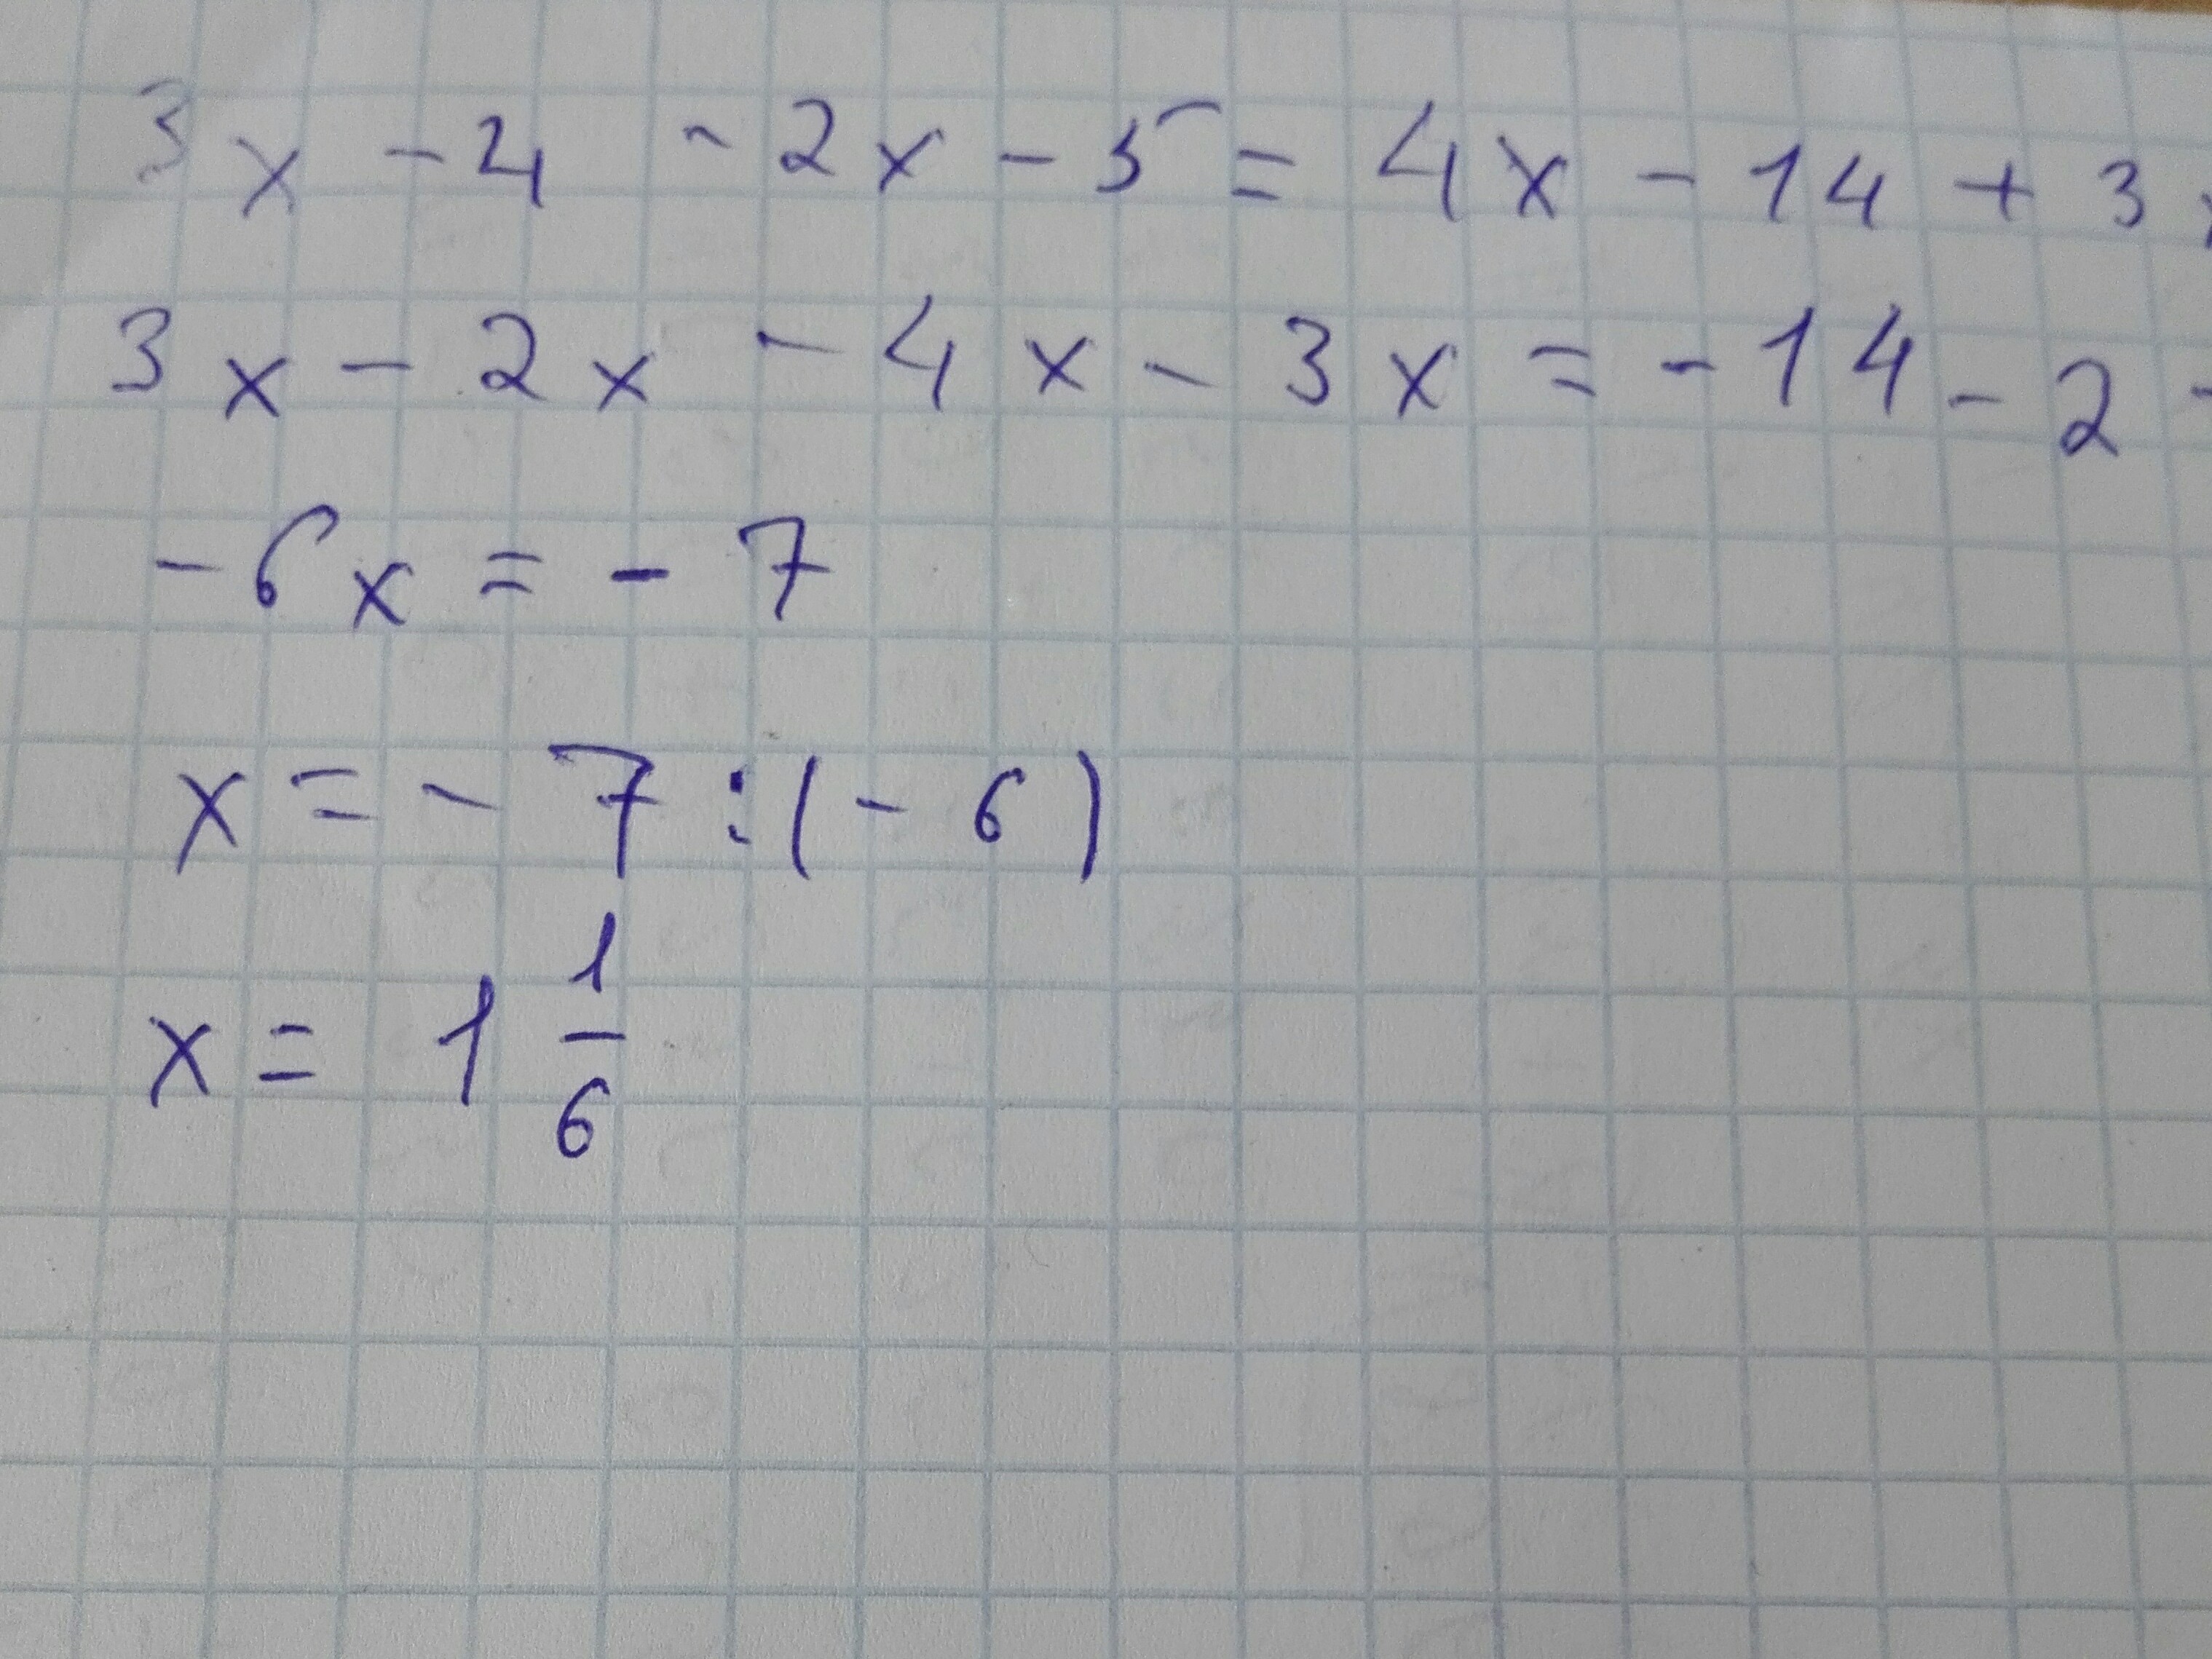 3x - 4 - 2x - 5 = 4x - 14 + 3
3x - 2x - 4x - 3x = -14 - 2
-6x = -7
x = -7 : (-6)
x = 1 1/6